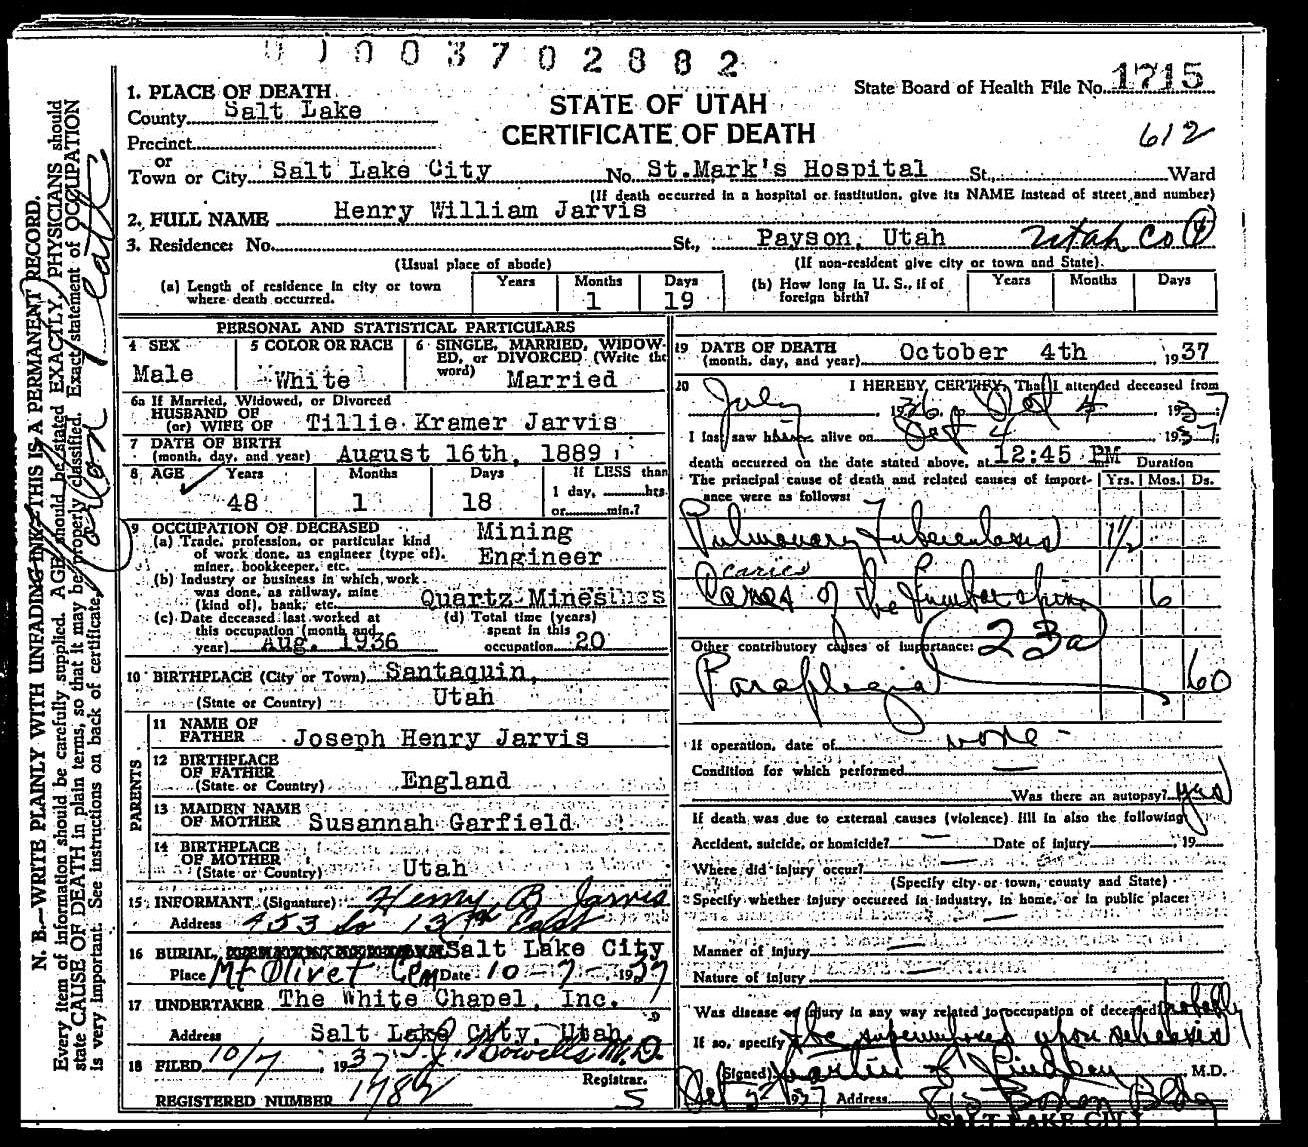 01003702882
1. PLACE OF DEATH
State Board of Health File No. 1715
County Salt Lake
STATE OF UTAH
CERTIFICATE OF DEATH
612
Precinct
or
Town or City Salt Lake City No. St.Mark's Hospital St., Ward
(If death occurred in a hospital or institution, give its NAME instead of street and number)
2. FULL NAME Henry William Jarvis
3. Residence: No. St., Payson, Utah Utah Co
(Usual place of abode) (If non-resident give city or town and State).
(a) Length of residence in city or town where death occurred. Years Months 1 Days 19
(b) How long in U. S., if of foreign birth? Years Months Days
PERSONAL AND STATISTICAL PARTICULARS
4 SEX Male
5 COLOR OR RACE White
6 SINGLE, MARRIED, WIDOWED, or DIVORCED (Write the word) Married
6a If Married, Widowed, or Divorced
HUSBAND OF
(or) WIFE OF Tillie Kramer Jarvis
7 DATE OF BIRTH
(month, day, and year) August 16th, 1889
8 AGE Years 48 Months 1 Days 18
If LESS than
1 day, hrs.
or min.?
9 OCCUPATION OF DECEASED
(a) Trade, profession, or particular kind
of work done, as engineer (type of),
miner, bookkeeper, etc. Mining Engineer
(b) Industry or business in which work
was done, as railway, mine
(kind of), bank, etc. Quartz Mines
(c) Date deceased last worked at
this occupation (month and
year) Aug. 1936
(d) Total time (years)
spent in this
occupation 20
10 BIRTHPLACE (City or Town) Santaquin,
(State or Country) Utah
PARENTS
11 NAME OF
FATHER Joseph Henry Jarvis
12 BIRTHPLACE
OF FATHER
(State or Country) England
13 MAIDEN NAME
OF MOTHER Susannah Garfield
14 BIRTHPLACE
OF MOTHER
(State or Country) Utah
15 INFORMANT (Signature) Henry B Jarvis
Address 453 So 13th East
16 BURIAL, Salt Lake City
Place Mt Olivet Cem Date 10-7-1937
17 UNDERTAKER The White Chapel, Inc.
Address Salt Lake City, Utah
18 FILED 10/7, 1937 T.J. Howells M.D.
Registrar.
REGISTERED NUMBER 1782
5
19 DATE OF DEATH
(month, day, and year) October 4th 1937
20 I HEREBY CERTIFY, That I attended deceased from
July 1936 to Oct 4 1937;
I last saw him alive on Oct 4 1937;
death occurred on the date stated above, at 12:45 PM
Duration
The principal cause of death and related causes of importance were as follows: Yrs. Mos. Ds.
Pulmonary Tuberculosis 1½
caries
Caries of the Lumbar spine 6
Other contributory causes of importance: 23a
Paraplegia 60
If operation, date of none
Condition for which performed
Was there an autopsy? yes
If death was due to external causes (violence) fill in also the following:
Accident, suicide, or homicide? Date of injury , 19
Where did injury occur?
(Specify city or town, county and State)
Specify whether injury occurred in industry, in home, or in public place:
Manner of injury
Nature of injury
Was disease or injury in any way related to occupation of deceased? probably
If so, specify Tbc superimposed upon silicosis
(Signed) Martin C Lindem, M.D.
Oct 5 1937 Address 815 Boston Bldg
SALT LAKE CITY
N. B.—WRITE PLAINLY WITH UNFADING INK—THIS IS A PERMANENT RECORD.
Every item of information should be carefully supplied. AGE should be stated EXACTLY. PHYSICIANS should
state CAUSE OF DEATH in plain terms, so that it may be properly classified. Exact statement of OCCUPATION
is very important. See instructions on back of certificate.